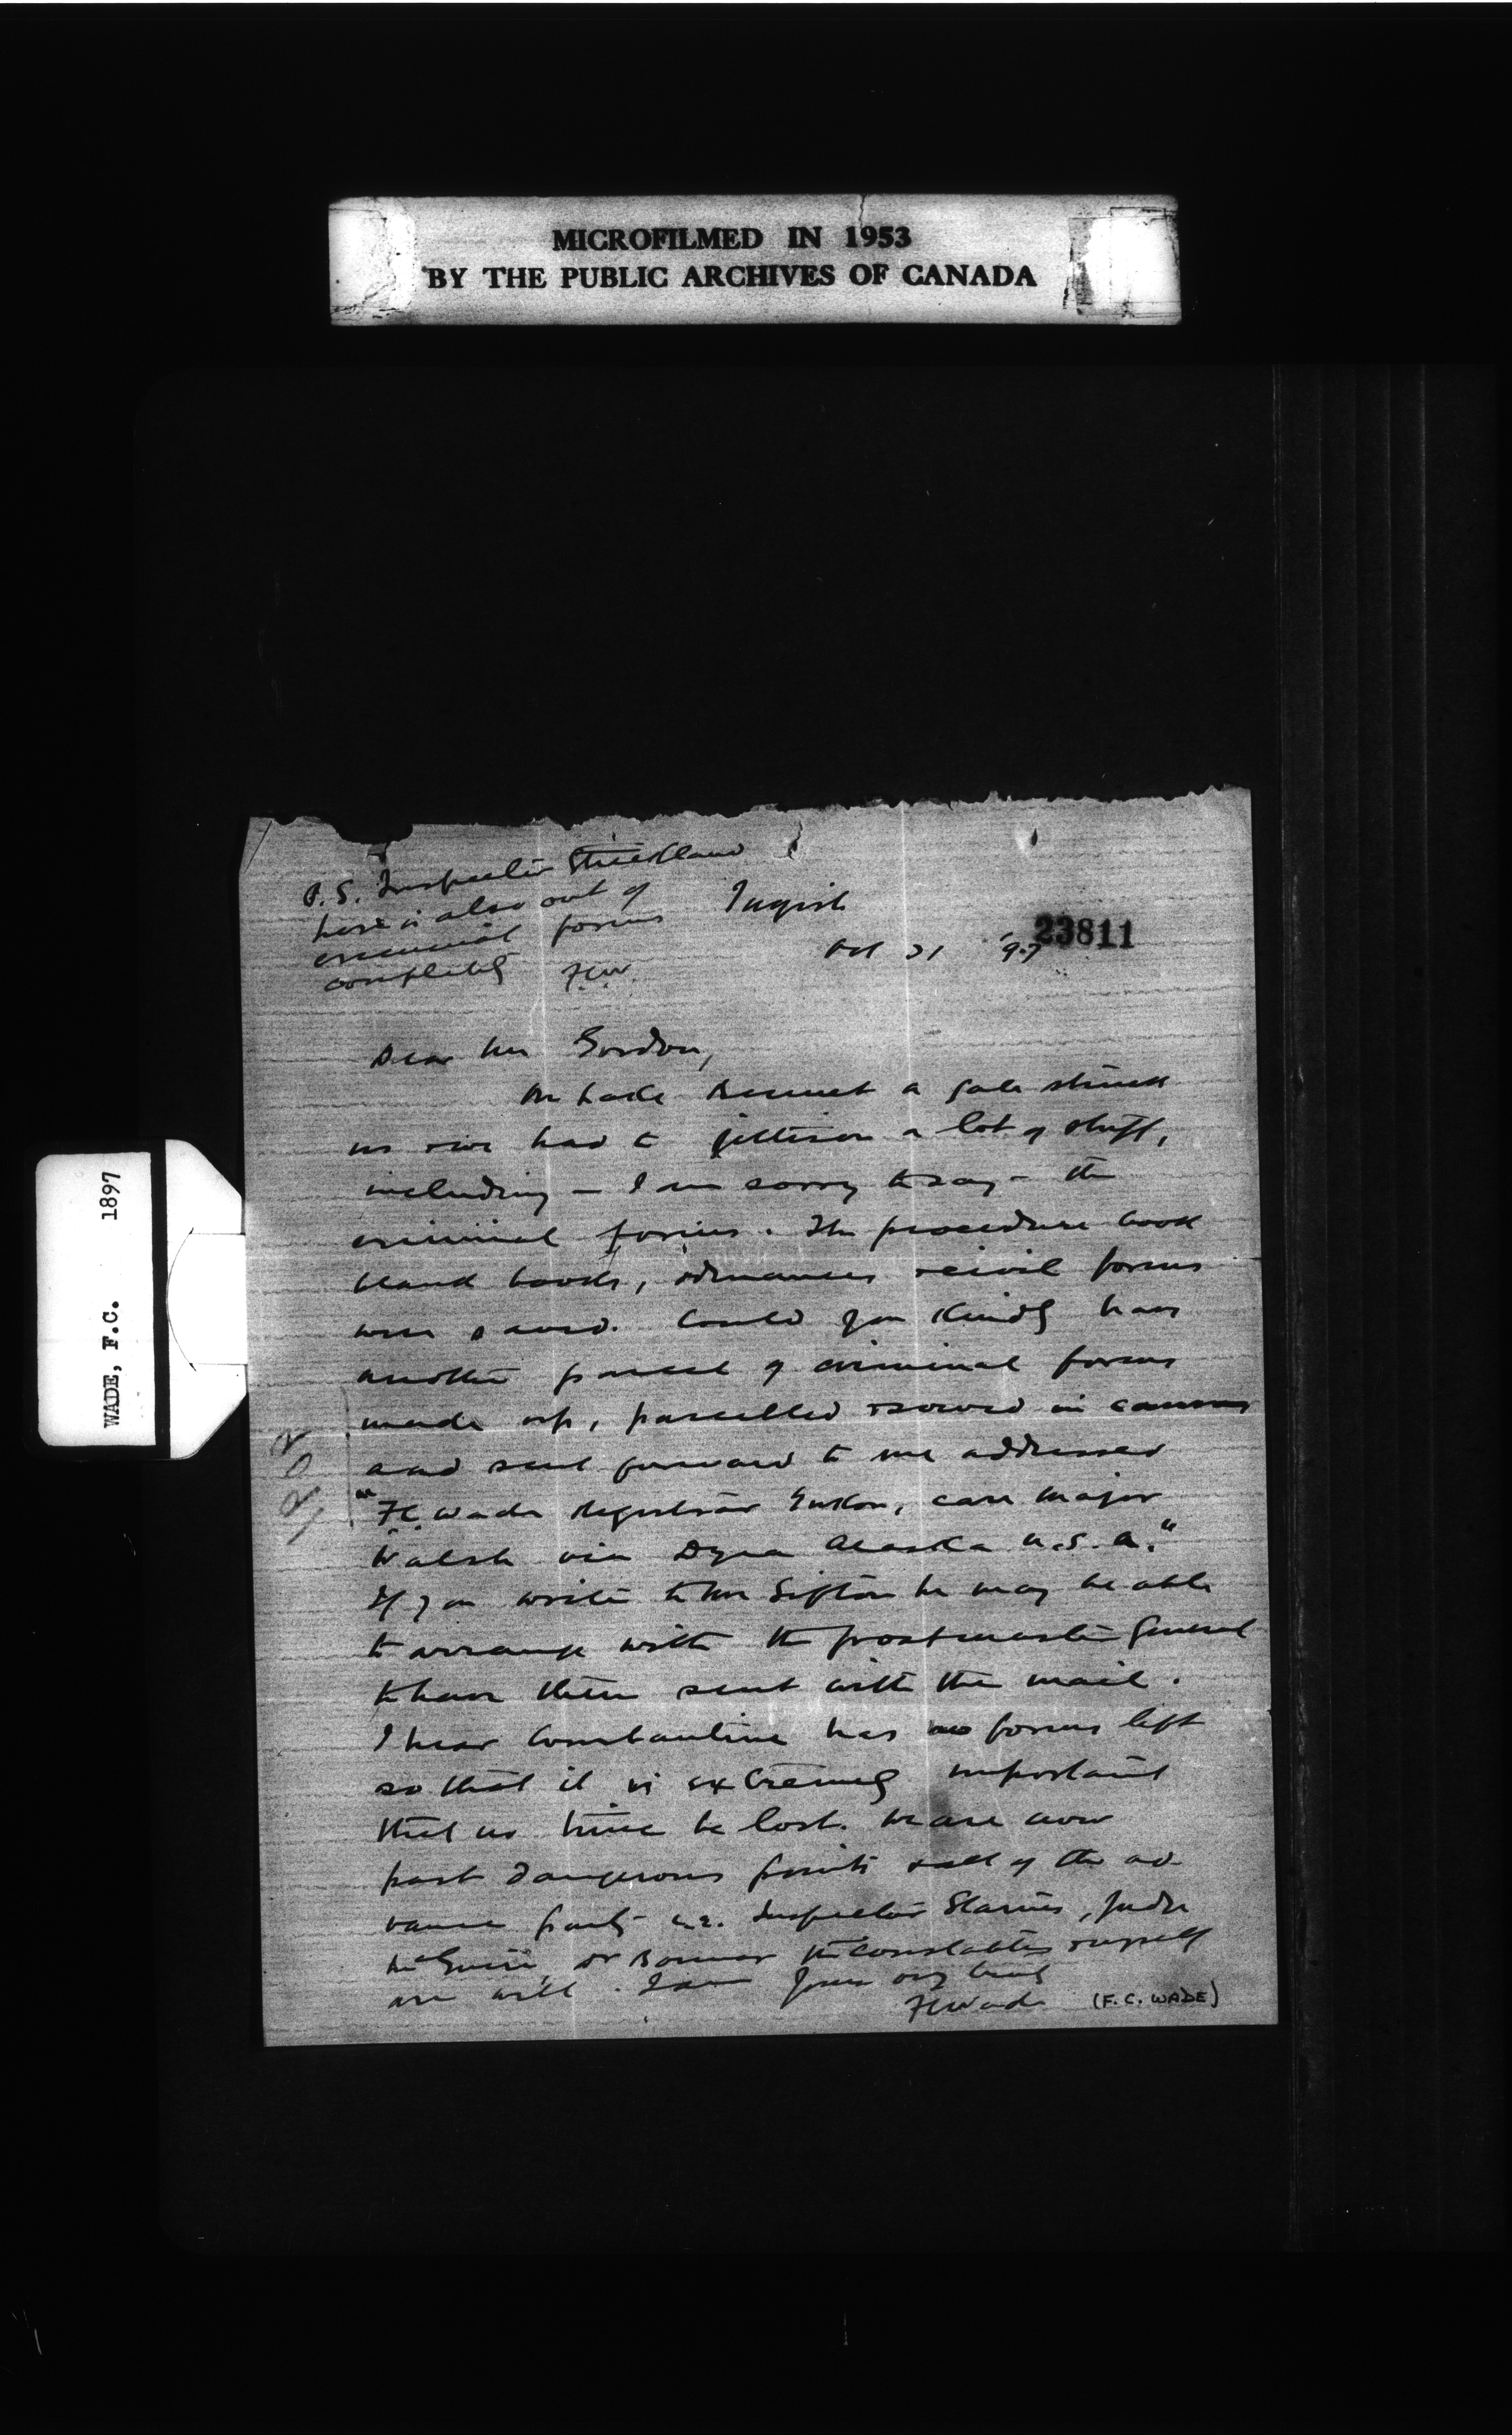 MICROFILMED IN 1953
BY THE PUBLIC ARCHIVES OF CANADA
WADE, F.C. 1897
P.S. Inspector Strickland
here is also out of
criminal forms
completely F.C.W.
Tagish
23811
Oct 21 '97
Dear Mr Gordon,
On Lake Bennet a gale struck
us & we had to jettison a lot of stuff,
including — I am sorry to say — the
criminal forms. The procedure book
blank books, ordinances & civil forms
were saved. Could you kindly have
another parcel of criminal forms
made up, parcelled & sewed in canvas
and sent forward to me addressed
"F.C. Wade Registrar Yukon, care Major
Walsh via Dyea Alaska U.S.A."
If you write to Mr Sifton he may be able
to arrange with the postmaster General
to have them sent with the mail.
I hear Constantine has no forms left
so that it is extremely important
that no time be lost. We are now
past dangerous points & all of the ad-
vance party i.e. Inspector Starnes, Judge
McGuire, Dr Bonnar the constables & myself
are well. I am yours very truly
FCWade (F.C. WADE)